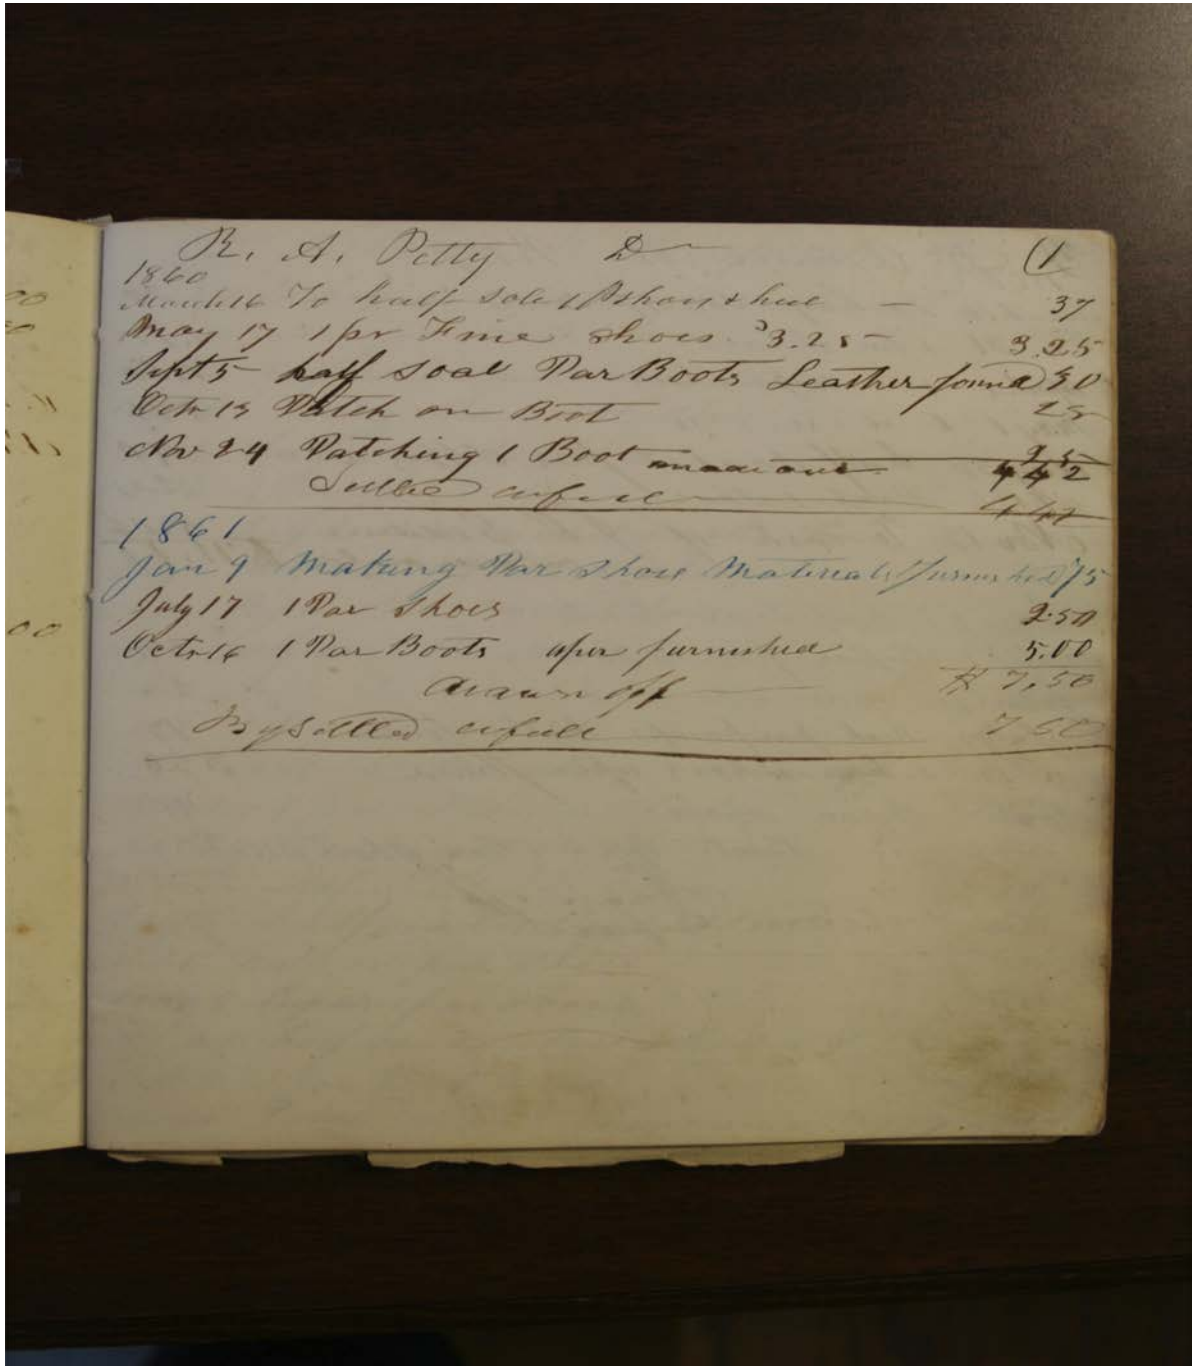 R. A. Petty Dr (1
1860
March 16 To half sole 1 P shoes & heel — 37
May 17 1 pr Fine shoes $3.25 — 3.25
Sept 5 half soal Par Boots Leather found 30
Octr 13 Patch on Boot 25
Nov 24 Patching 1 Boot made out 25
4 42
Settled in full 4 42
1861
Jan 9 Making Par Shoes Materials furnished 75
July 17 1 Par Shoes 2.50
Octr 16 1 Par Boots uper furnished 5.00
drawn off $ 7,50
By settled in full 7 50
00
00